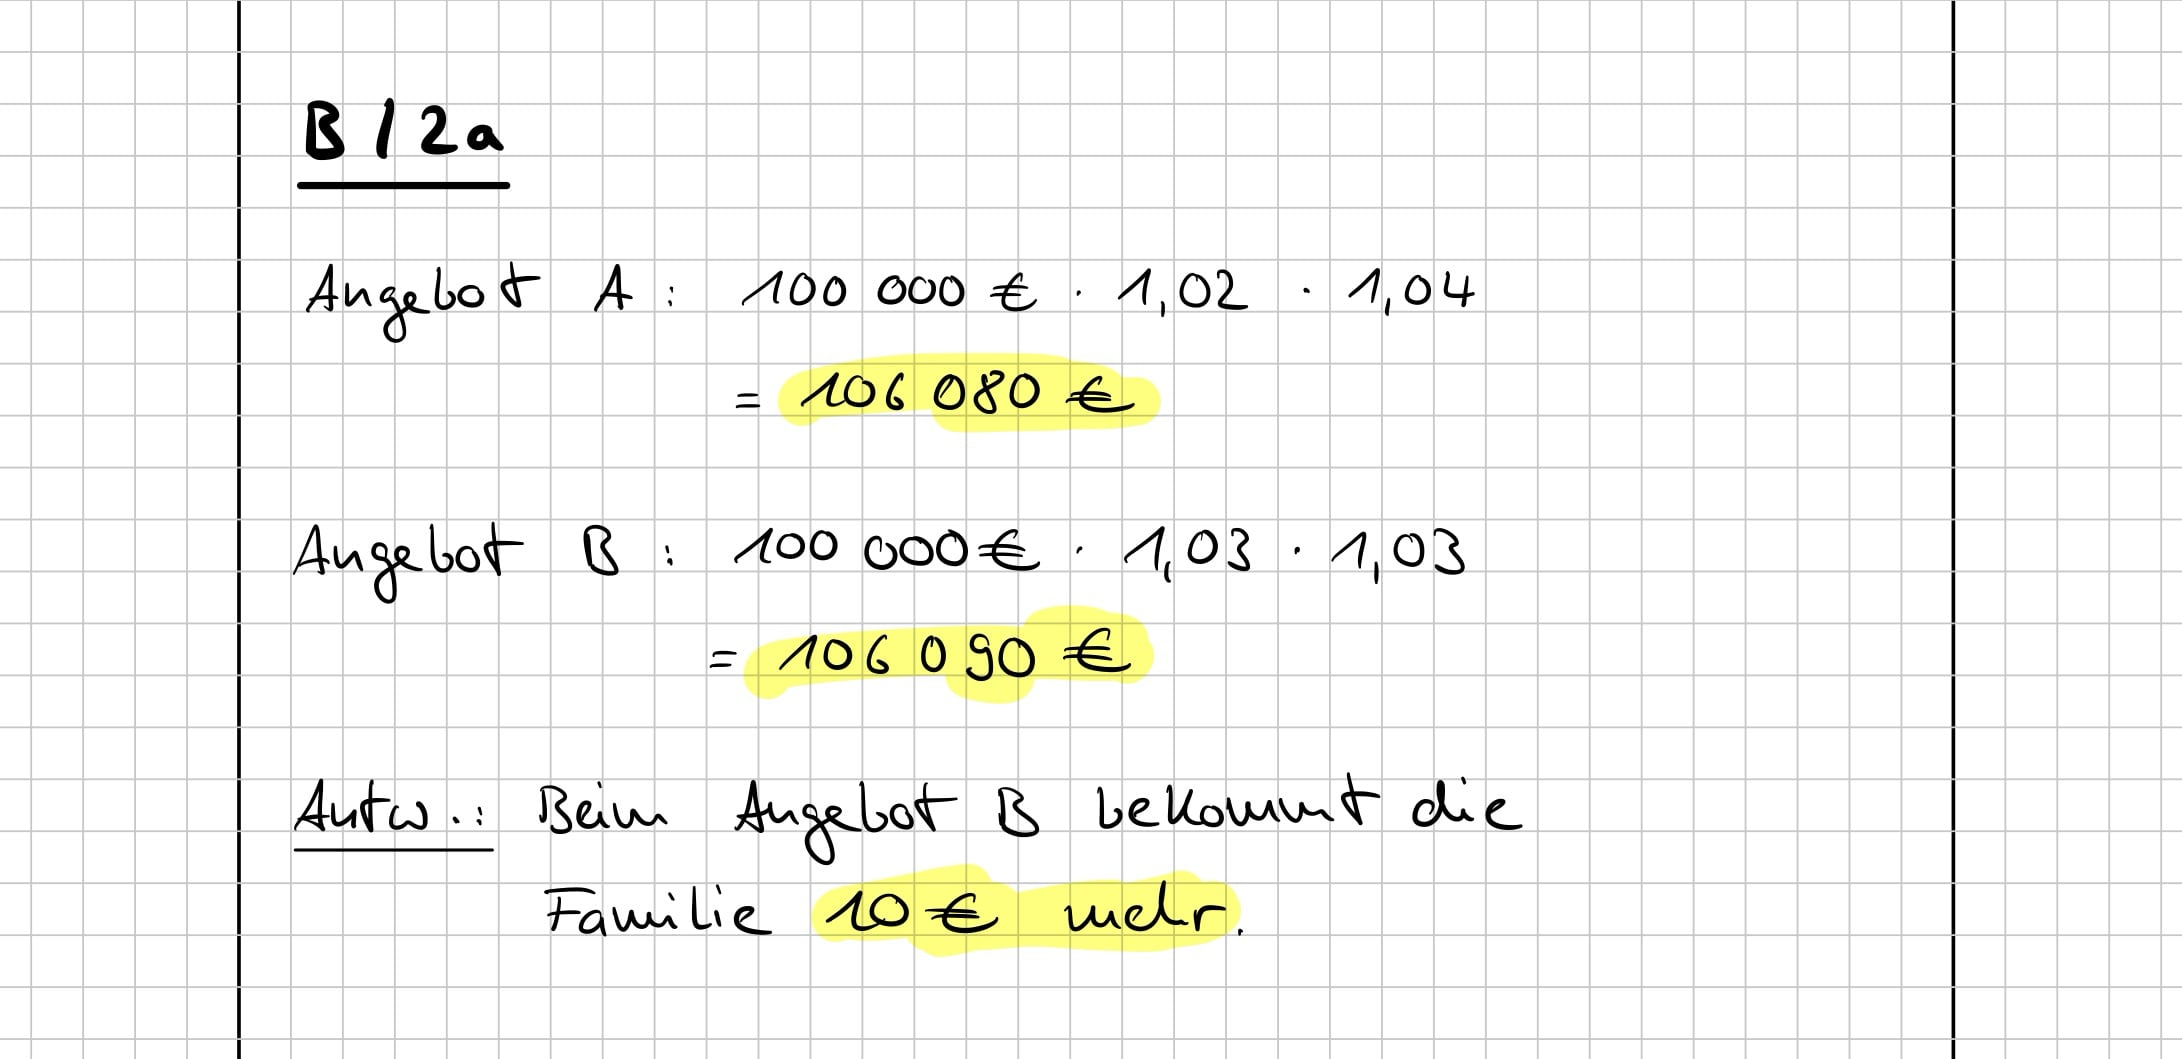 B/2a
Angebot A: 100 000 € · 1,02 · 1,04
= 106 080 €
Angebot B: 100 000 € · 1,03 · 1,03
= 106 090 €
Antw.: Beim Angebot B bekommt die
Familie 10 € mehr.